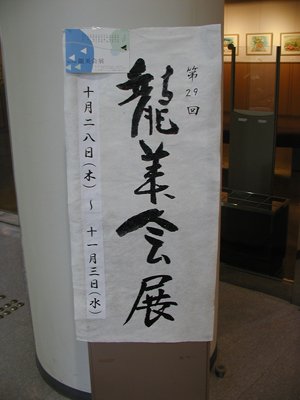 第29回
龍美会展
十月二八日(木)～十一月三日(水)